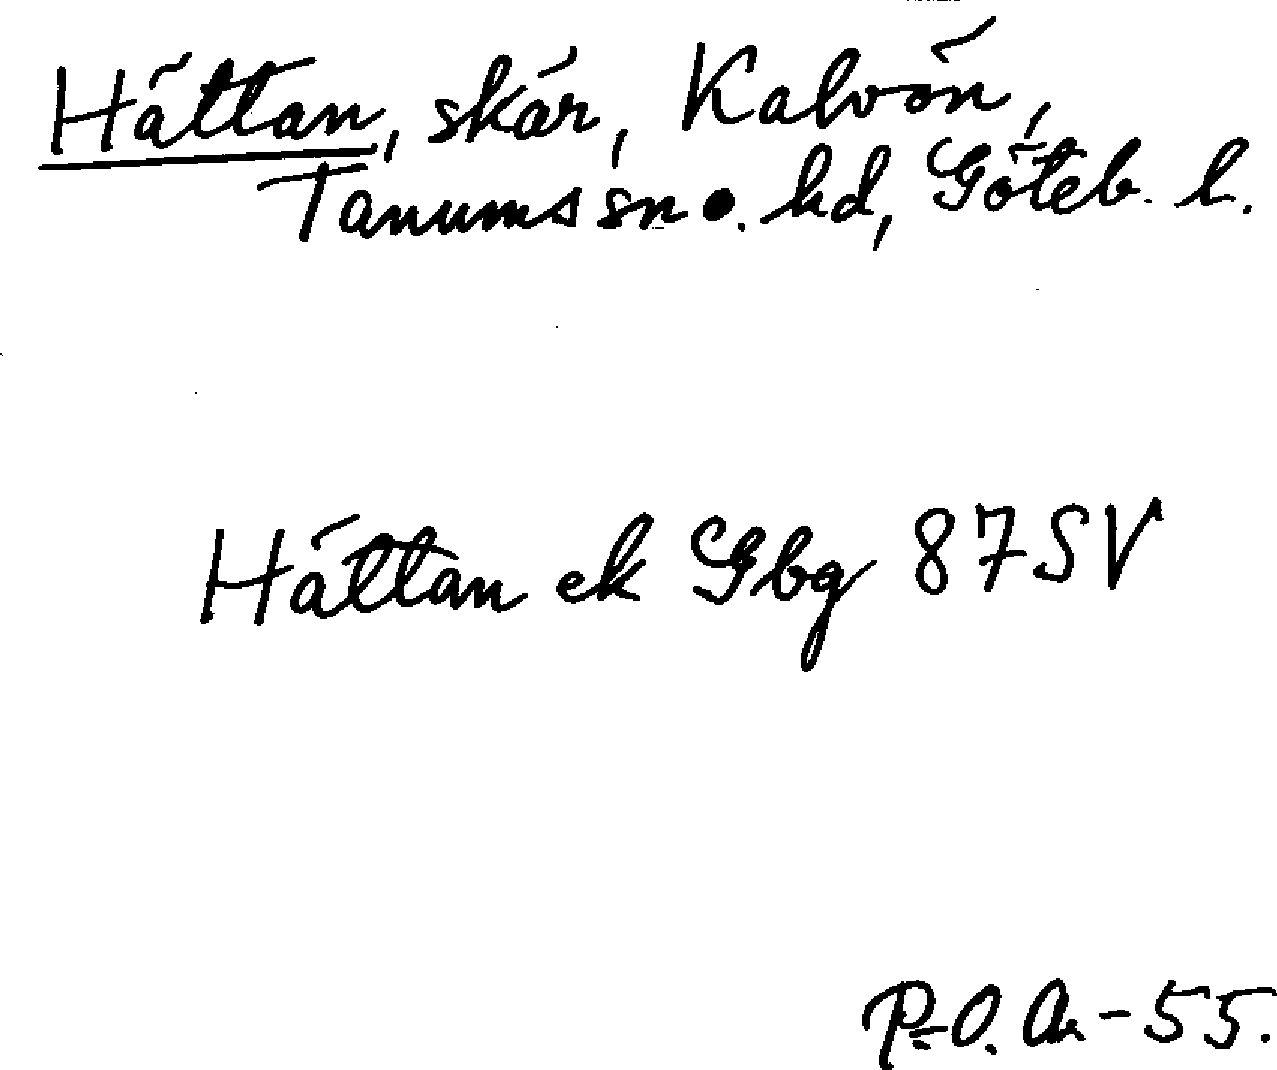 Hättan, skär, Kalvön,
Tanums sn o. hd, Göteb. l.
Hättan ek Gbg 87 SV
P-O. An - 55.